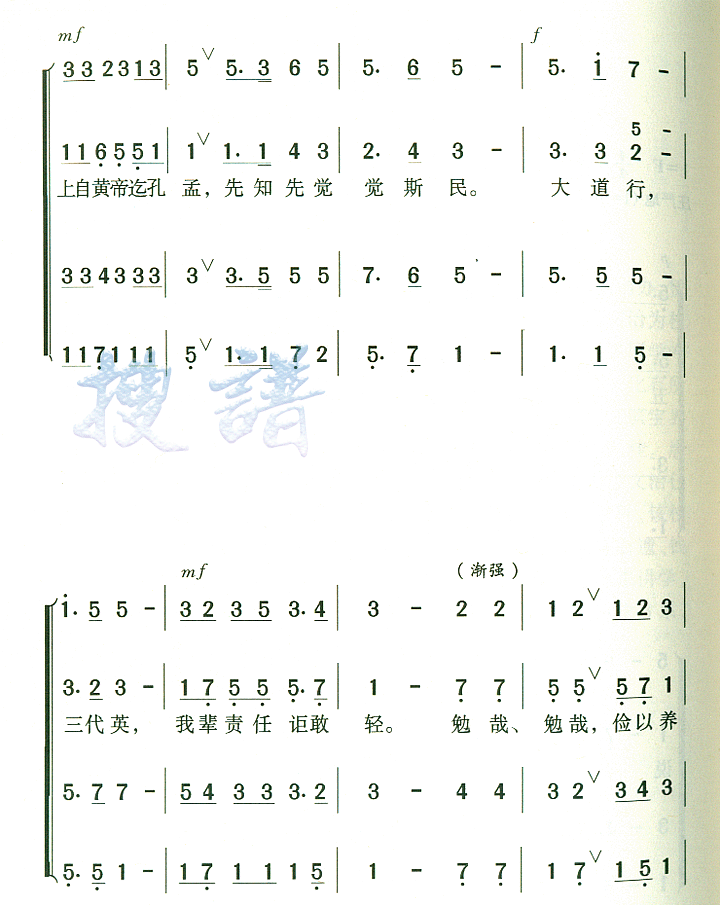 mf f
3 3 2 3 1 3 | 5 ∨ 5. 3 6 5 | 5. 6 5 - | 5. i 7 - |
5 -
1 1 6 5 5 1 | 1 ∨ 1. 1 4 3 | 2. 4 3 - | 3. 3 2 - |
上自黄帝迄孔 孟，先知先觉 觉斯民。 大道行，
3 3 4 3 3 3 | 3 ∨ 3. 5 5 5 | 7. 6 5 - | 5. 5 5 - |
1 1 7 1 1 1 | 5 ∨ 1. 1 7 2 | 5. 7 1 - | 1. 1 5 - |
搜譜
mf （渐强）
i. 5 5 - | 3 2 3 5 3. 4 | 3 - 2 2 | 1 2 ∨ 1 2 3 |
3. 2 3 - | 1 7 5 5 5. 7 | 1 - 7 7 | 5 5 ∨ 5 7 1 |
三代英， 我辈责任讵敢 轻。 勉哉、 勉哉，俭以养
5. 7 7 - | 5 4 3 3 3. 2 | 3 - 4 4 | 3 2 ∨ 3 4 3 |
5. 5 1 - | 1 7 1 1 1 5 | 1 - 7 7 | 1 7 ∨ 1 5 1 |